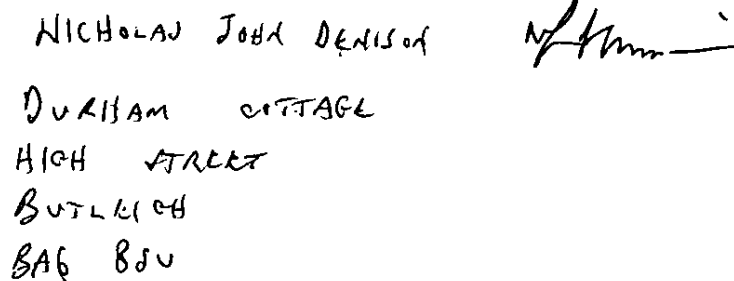 NICHOLAS JOHN DENISON
DURHAM COTTAGE
HIGH STREET
BUTLEIGH
BA6 8SU